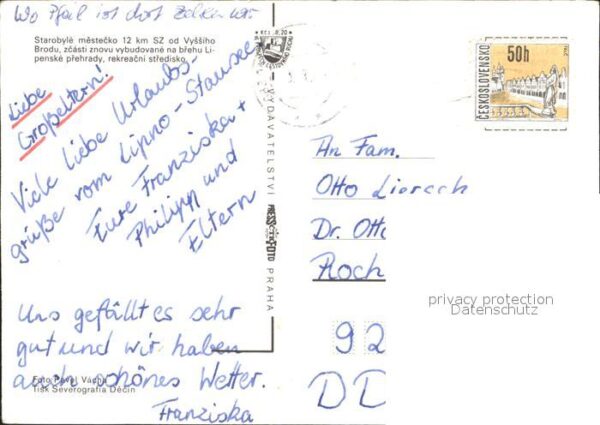 Wo Pfeil ist dort zelten wir
Starobylé městečko 12 km SZ od Vyššího
Brodu, zčásti znovu vybudované na břehu Li-
penské přehrady, rekreační středisko.
Liebe
Großeltern!
Viele liebe Urlaubs-
grüße vom Lipno-Stausee
Eure Franziska +
Philipp und
Eltern
Uns gefällt es sehr
gut und wir haben
auch schönes Wetter.
Franziska
Foto Pavel Vácha
Tisk Severografia Děčín
VYDAVATELSTVÍ
PRESSFOTO
PRAHA
ČESKOSLOVENSKO
50h
An Fam.
Otto Liersch
Dr. Otto
Roch
92
DD
privacy protection
Datenschutz